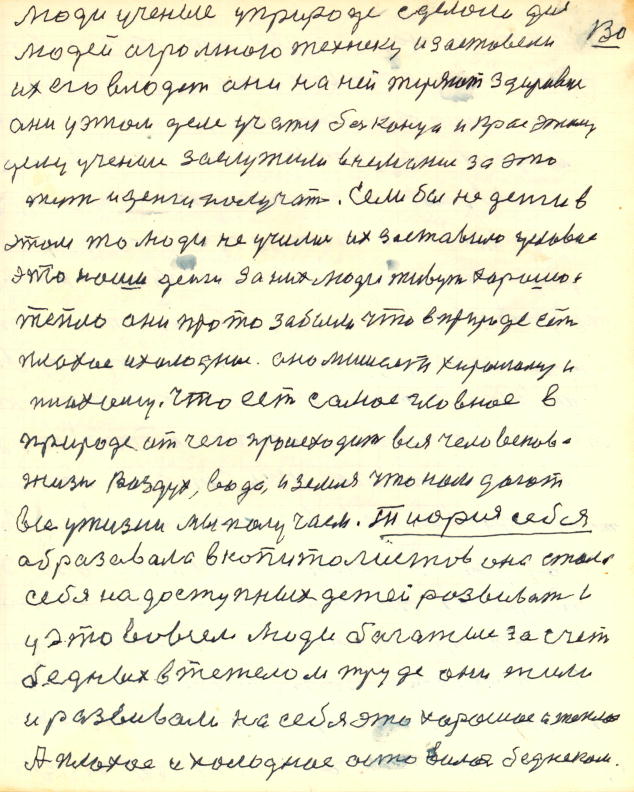 Люди ученые у природе сделали для
130
людей огромного технеку и заставели
их его влодет они на ней теряют здаровие
они у этом деле учати без конца и края этому
делу ученые заслужили внемание за это
и денги получат. Если бы не денги в
этом то люди не учили их заставило условие
это наши денги за них люди живут харошо и
тепло они прото забыли что в природе ест
плохое и холодное. оно мишает харошому и
плохому. Что ест самое гловное в
природе от чего происходит вся человеков-
жизн Воздух, вода, и земля что нам дают
все у жизни мы получаем. Тиория себя
абразавала в копитолистов она стала
себя на доступных детей розвиват и
у это вовсем люди багатые за счет
бедных в тежелом труде они жили
и развивали на себя это харошое и тепло
А плохое и холодное оставили беднеком.